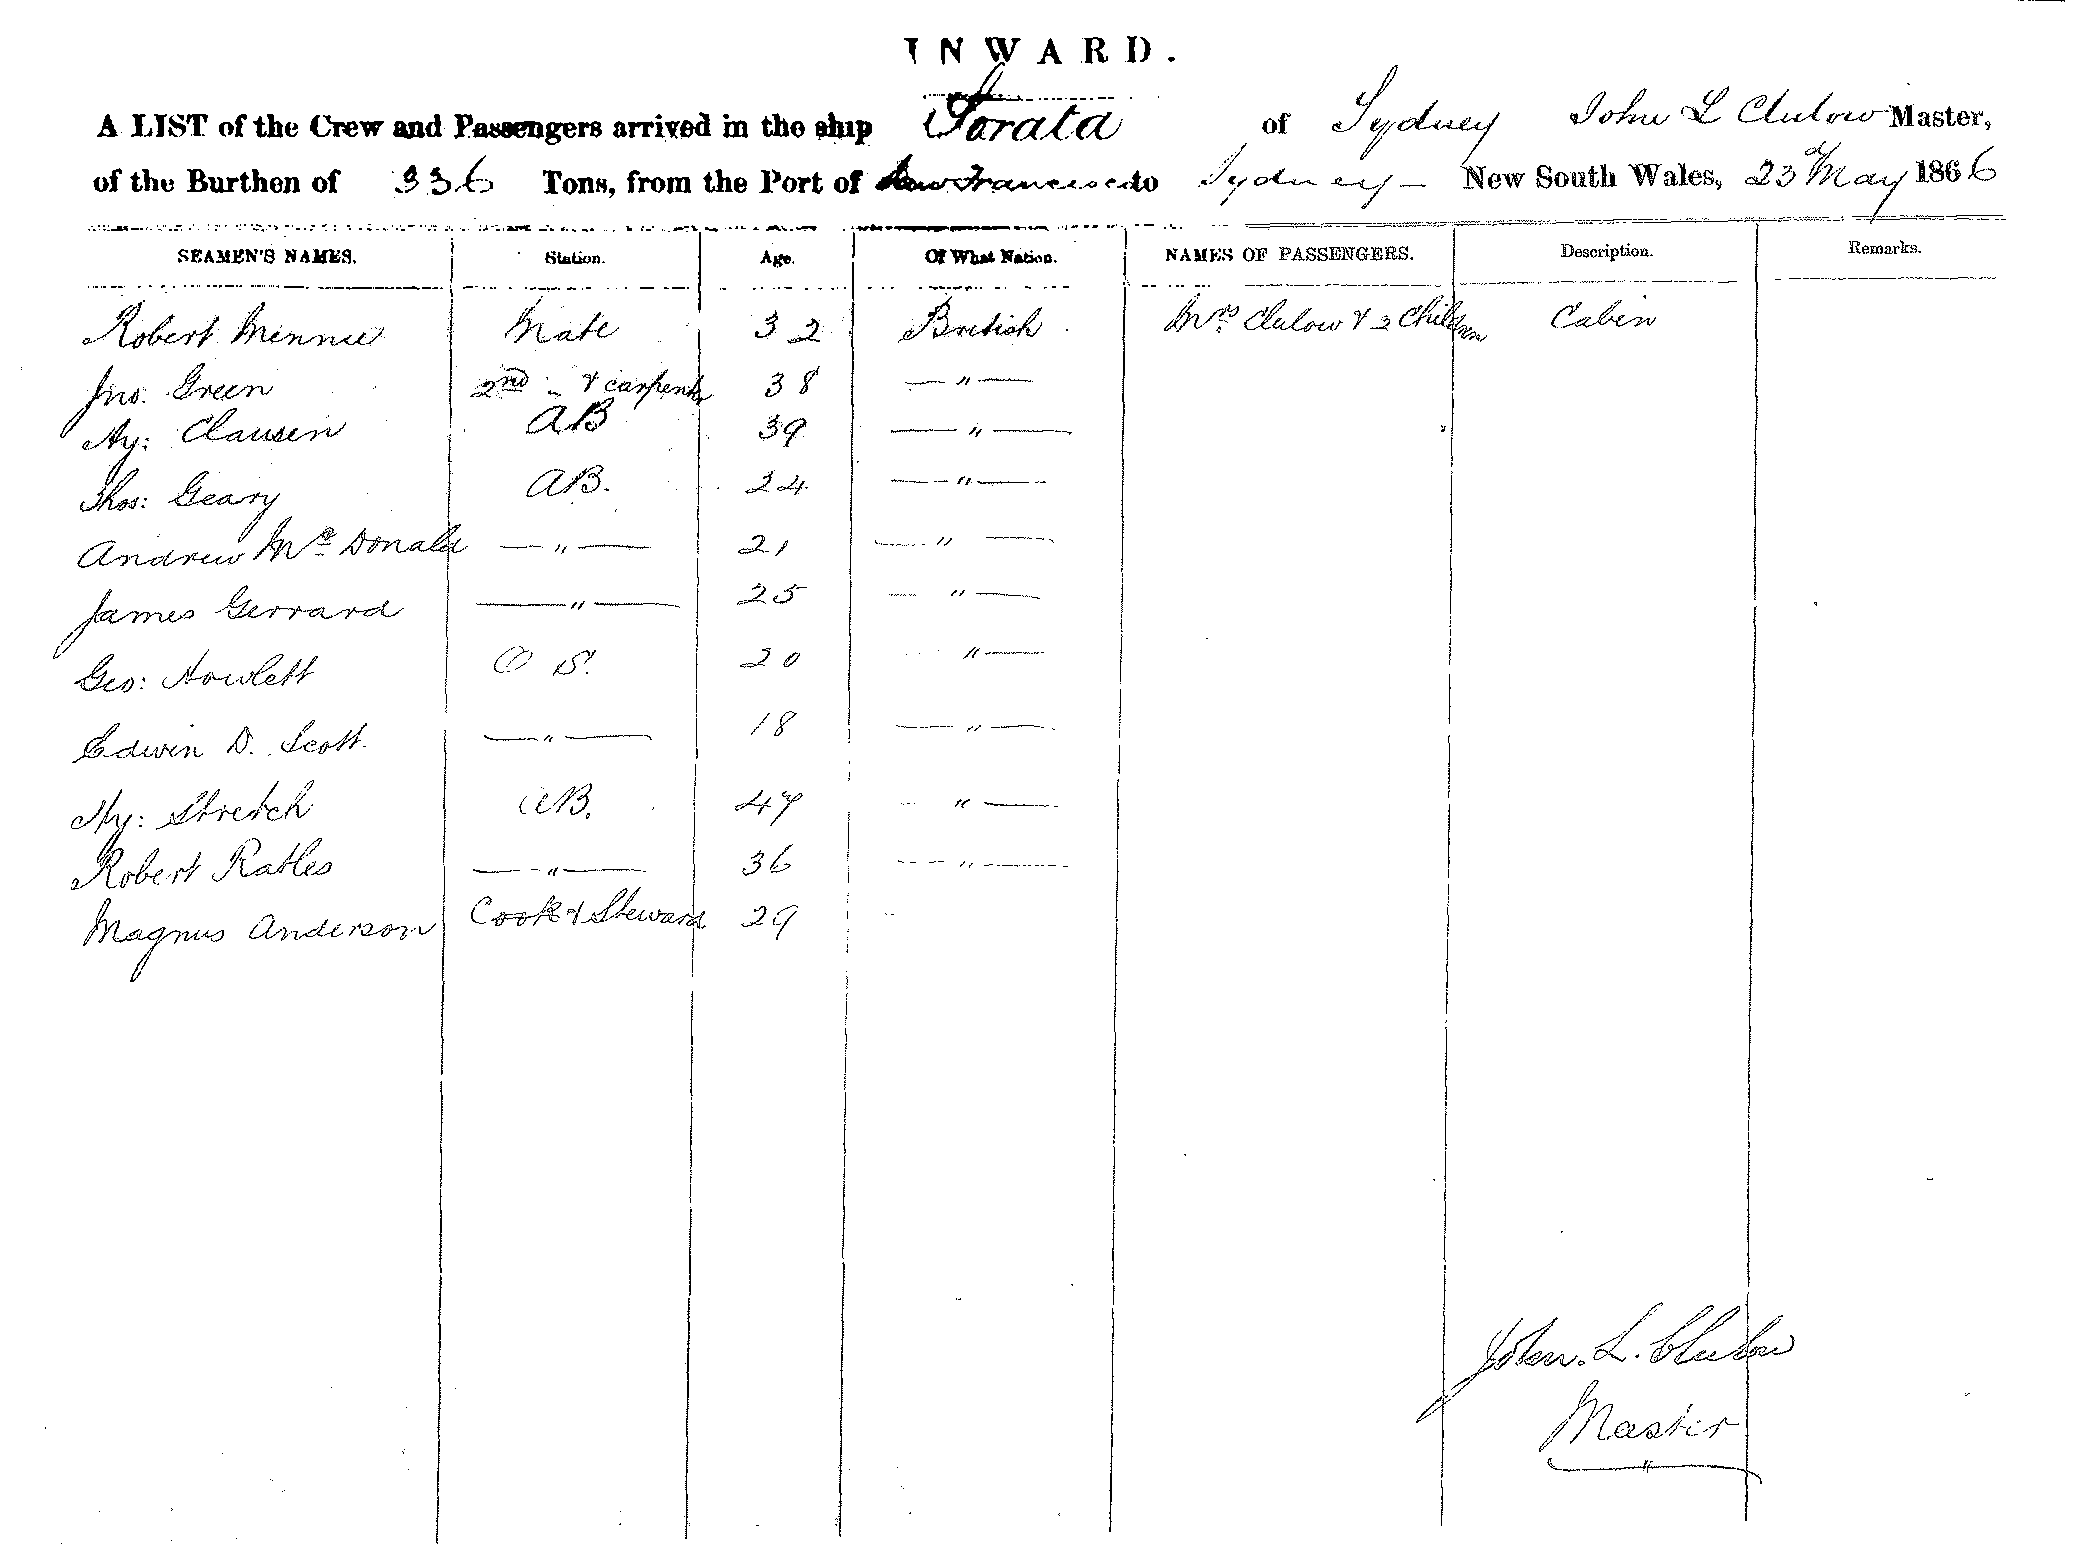 INWARD.
A LIST of the Crew and Passengers arrived in the ship Sorata of Sydney John L Clulow Master,
of the Burthen of 336 Tons, from the Port of San Francisco to Sydney - New South Wales, 23d May 1866
SEAMEN'S NAMES. Station. Age. Of What Nation. NAMES OF PASSENGERS. Description. Remarks.
Robert Mennie Mate 32 British Mrs Clulow & 2 Children Cabin
Jno. Green 2nd " & carpenter 38 — " —
Hy: Clausen AB 39 — " —
Thos: Geary AB. 24 — " —
Andrew Mc Donald — " — 21 — " —
James Gerrard — " — 25 — " —
Geo: Howlett O S. 20 " —
Edwin D. Scott — " — 18 — " —
Hy: Stretch AB. 47 " —
Robert Ratles — " — 36 — " —
Magnus Anderson Cook & Steward 29
John. L. Clulow
Master